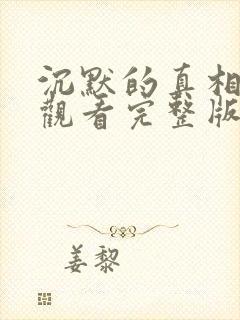 沉默的真相
觀看完整版
姜黎